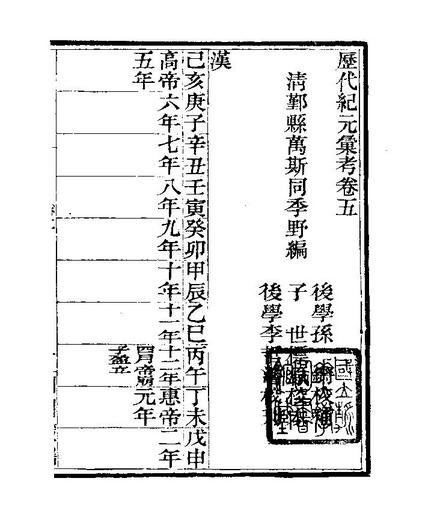 歷代紀元彙考卷五
清鄞縣萬斯同季野編
後學孫
子 世
後學李
漢
己亥庚子辛丑壬寅癸卯甲辰乙巳丙午丁未戊申
高帝六年七年八年九年十年十一年十二年惠帝二年
五年
元年